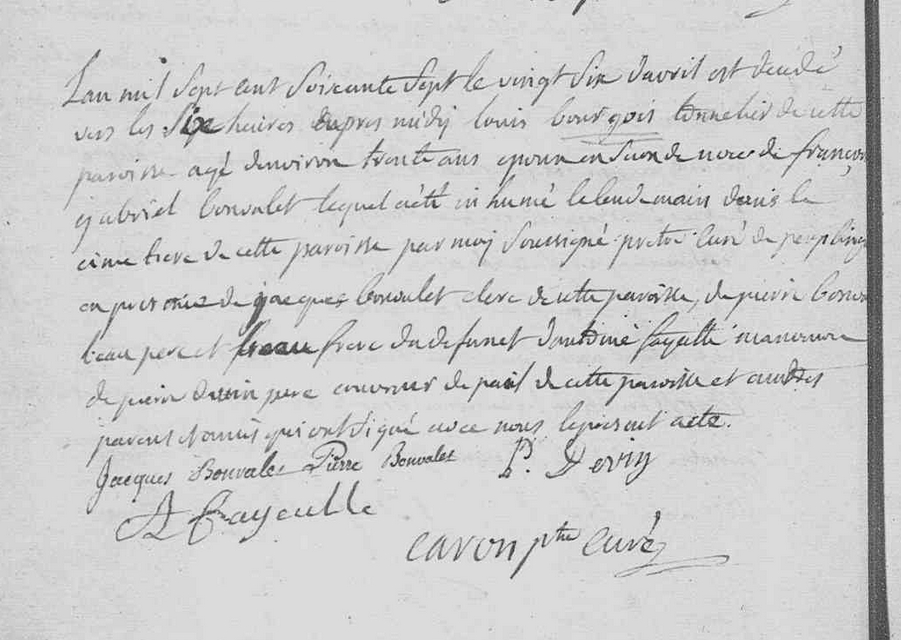 L'an mil sept cent soixante sept le vingt six d'avril est decedé
vers les six heures d'apres midy louis bourgois tonnelier de cette
paroisse agé d'environ trente ans epoux en seconde noce de françoi
gabriel bonvalet lequel a été inhumé le lendemain dans le
cimetiere de cette paroisse par moy soussigné pretre curé de peupling
en presence de jacques bonvalet clerc de cette paroisse, de pierre bonva
beau pere et beau frere du defunct d'antoine fayeulle manouvrie
de pierre devin pere couvreur de pail de cette paroisse et autres
parens et amis qui ont signé avec nous le present acte.
Jacques Bonvalet Pierre Bonvalet P. Devin
A Fayeulle
caron ptre curé